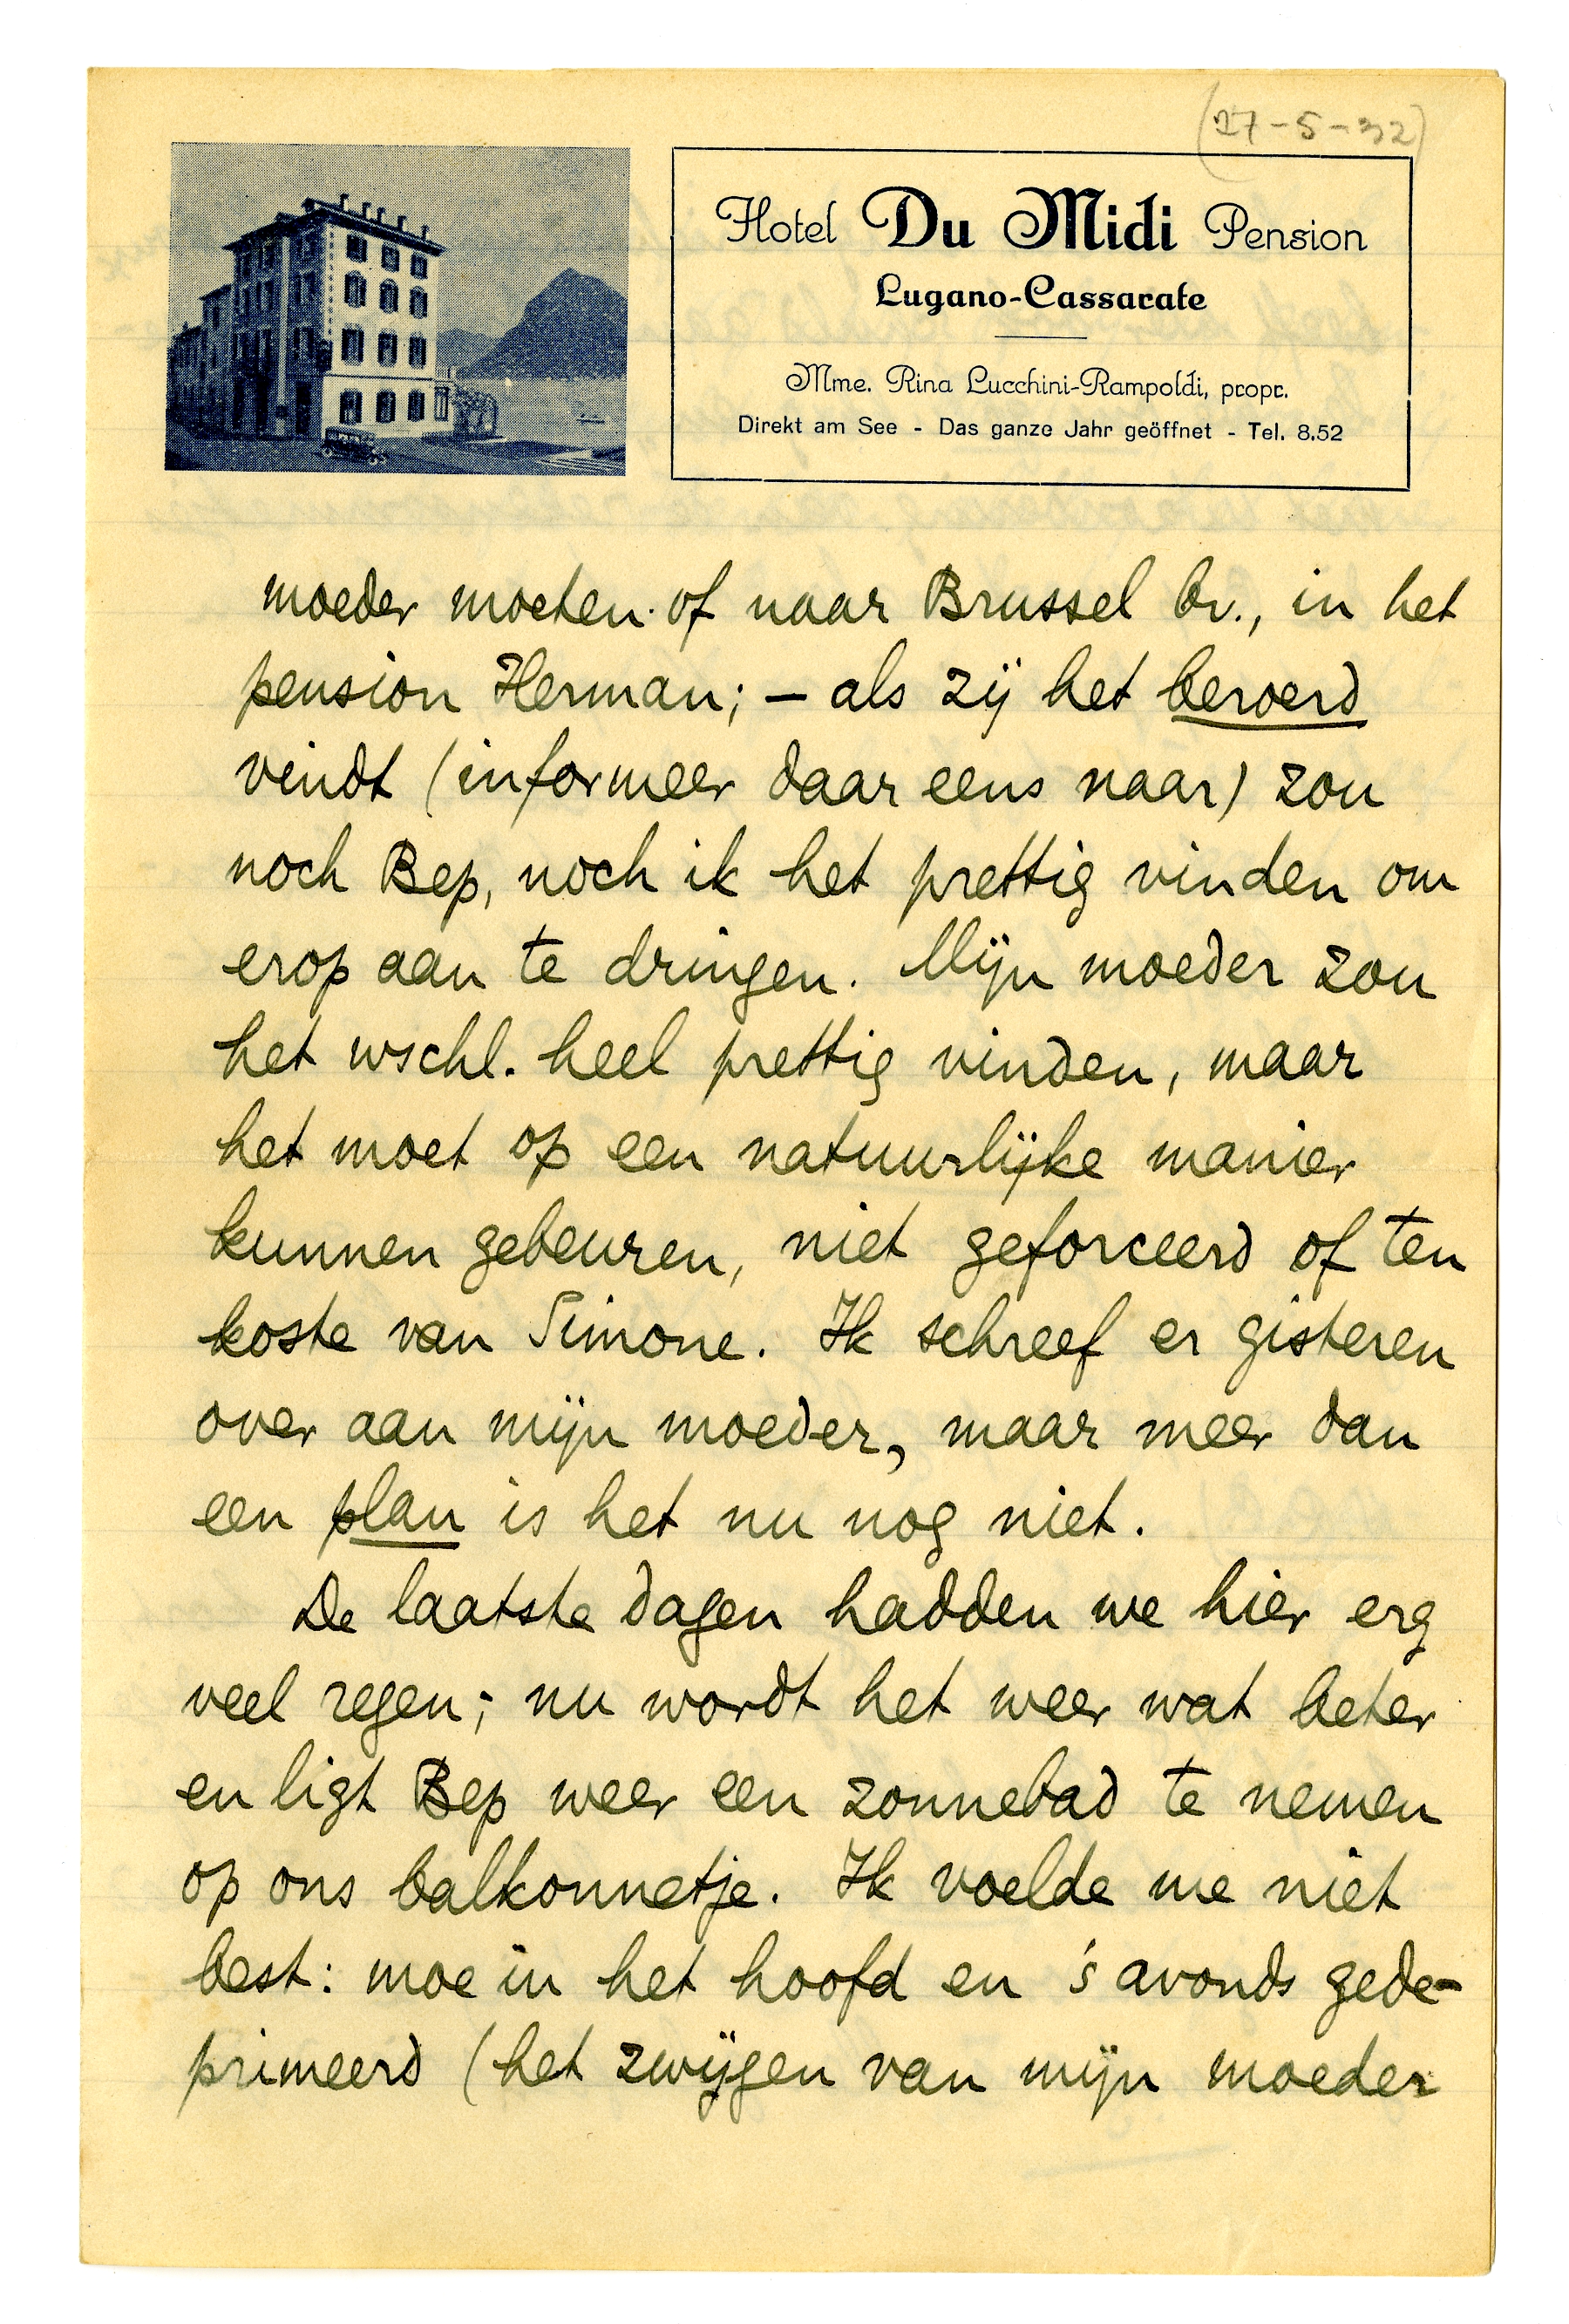 (27-5-32)
Hotel Du Midi Pension
Lugano-Cassarate
Mme. Rina Lucchini-Rampoldi, propr.
Direkt am See - Das ganze Jahr geöffnet - Tel. 8.52
moeder moeten of naar Brussel bv., in het
pension Herman; – als zij het beroerd
vindt (informeer daar eens naar) zou
noch Bep, noch ik het prettig vinden om
erop aan te dringen. Mijn moeder zou
het wschl. heel prettig vinden, maar
het moet op een natuurlijke manier
kunnen gebeuren, niet geforceerd of ten
koste van Simone. Ik schreef er gisteren
over aan mijn moeder, maar meer dan
een plan is het nu nog niet.
De laatste dagen hadden we hier erg
veel regen; nu wordt het weer wat beter
en ligt Bep weer een zonnebad te nemen
op ons balkonnetje. Ik voelde me niet
best: moe in het hoofd en 's avonds gede-
primeerd (het zwijgen van mijn moeder